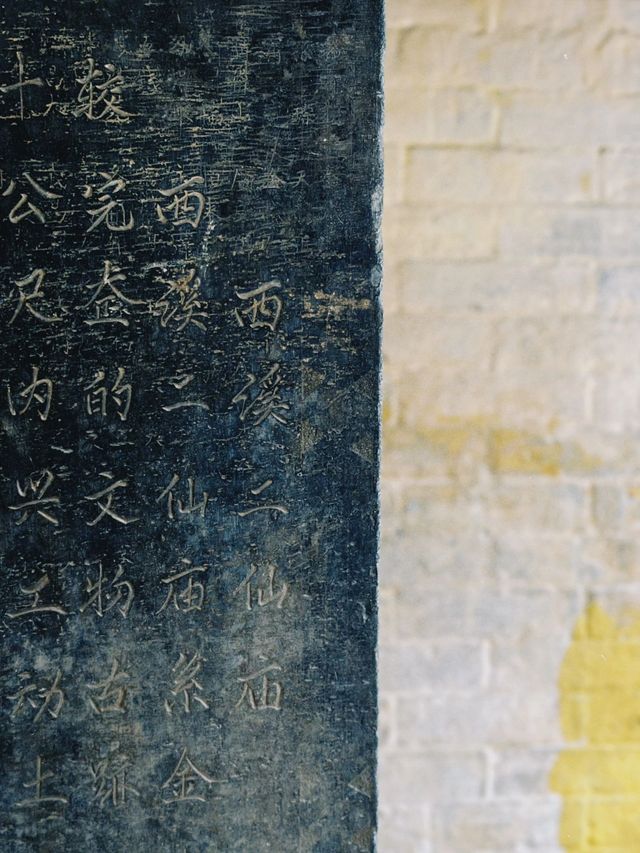 西溪二仙庙
西溪二仙庙系金
较完整的文物古跡
十公尺内兴工动土